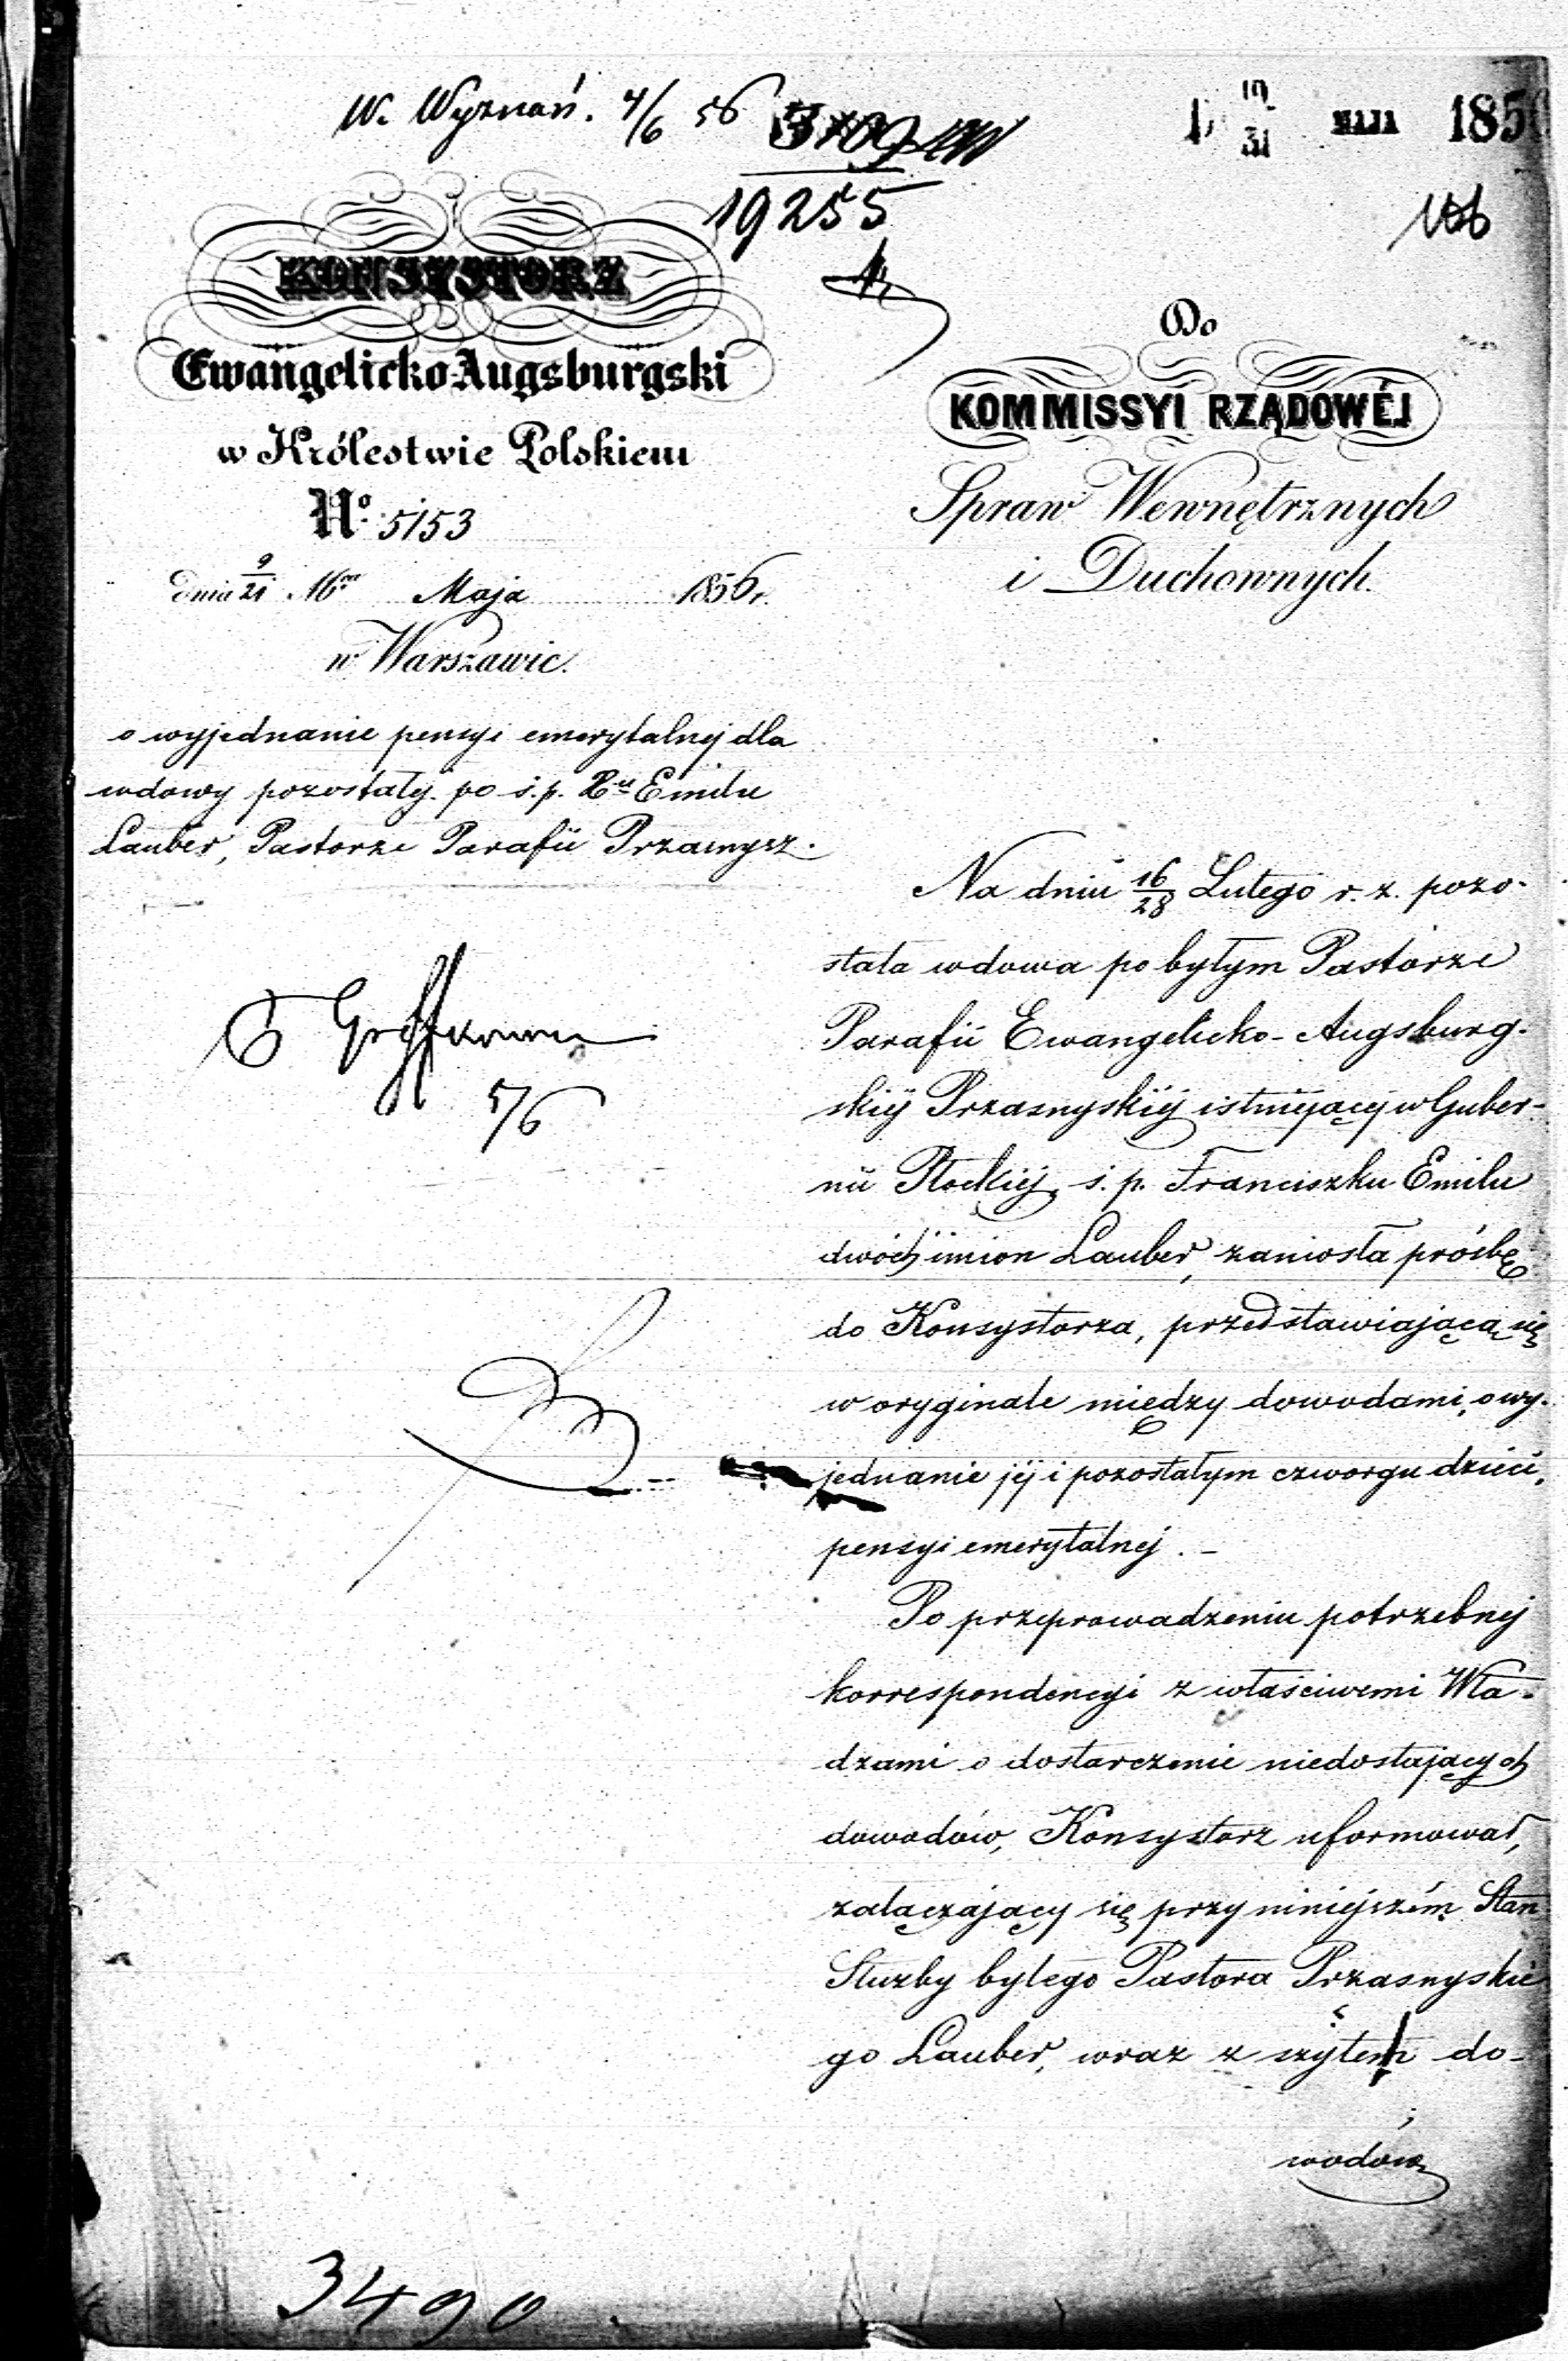 W. Wyznań. 4/6 56
19255
19
31 MAJA 185
KONSYSTORZ
Ewangelicko-Augsburgski
w Królestwie Polskiem
No. 5153
dnia 9/21 Maja 1856 r.
w Warszawie.
o wyjednanie pensyi emerytalnej dla
wdowy pozostałej po ś.p. Xu Emilu
Lauber, Pastorze Parafii Przasnysz.
5/6
Do
KOMMISSYI RZĄDOWÉJ
Spraw Wewnętrznych
i Duchownych.
Na dniu 16/28 Lutego r. z. pozo-
stała wdowa po byłym Pastorze
Parafii Ewangelicko-Augsburg-
skiej Przasnyskiej istniejącej w Guber-
nii Płockiej, ś. p. Franciszku Emilu
dwóch imion Lauber, zaniosła prośbę
do Konsystorza, przedstawiającą się
w oryginale między dowodami, o wy-
jednanie jej i pozostałym czworgu dzieci,
pensyi emerytalnej. -
Po przeprowadzeniu potrzebnej
korrespondencyi z właściwemi Wła-
dzami o dostarczenie niedostających
dowodów, Konsystorz uformował,
załączający się przy niniejszém Stan
Służby byłego Pastora Przasnyskie
go Lauber, wraz z do-
wodów
3490